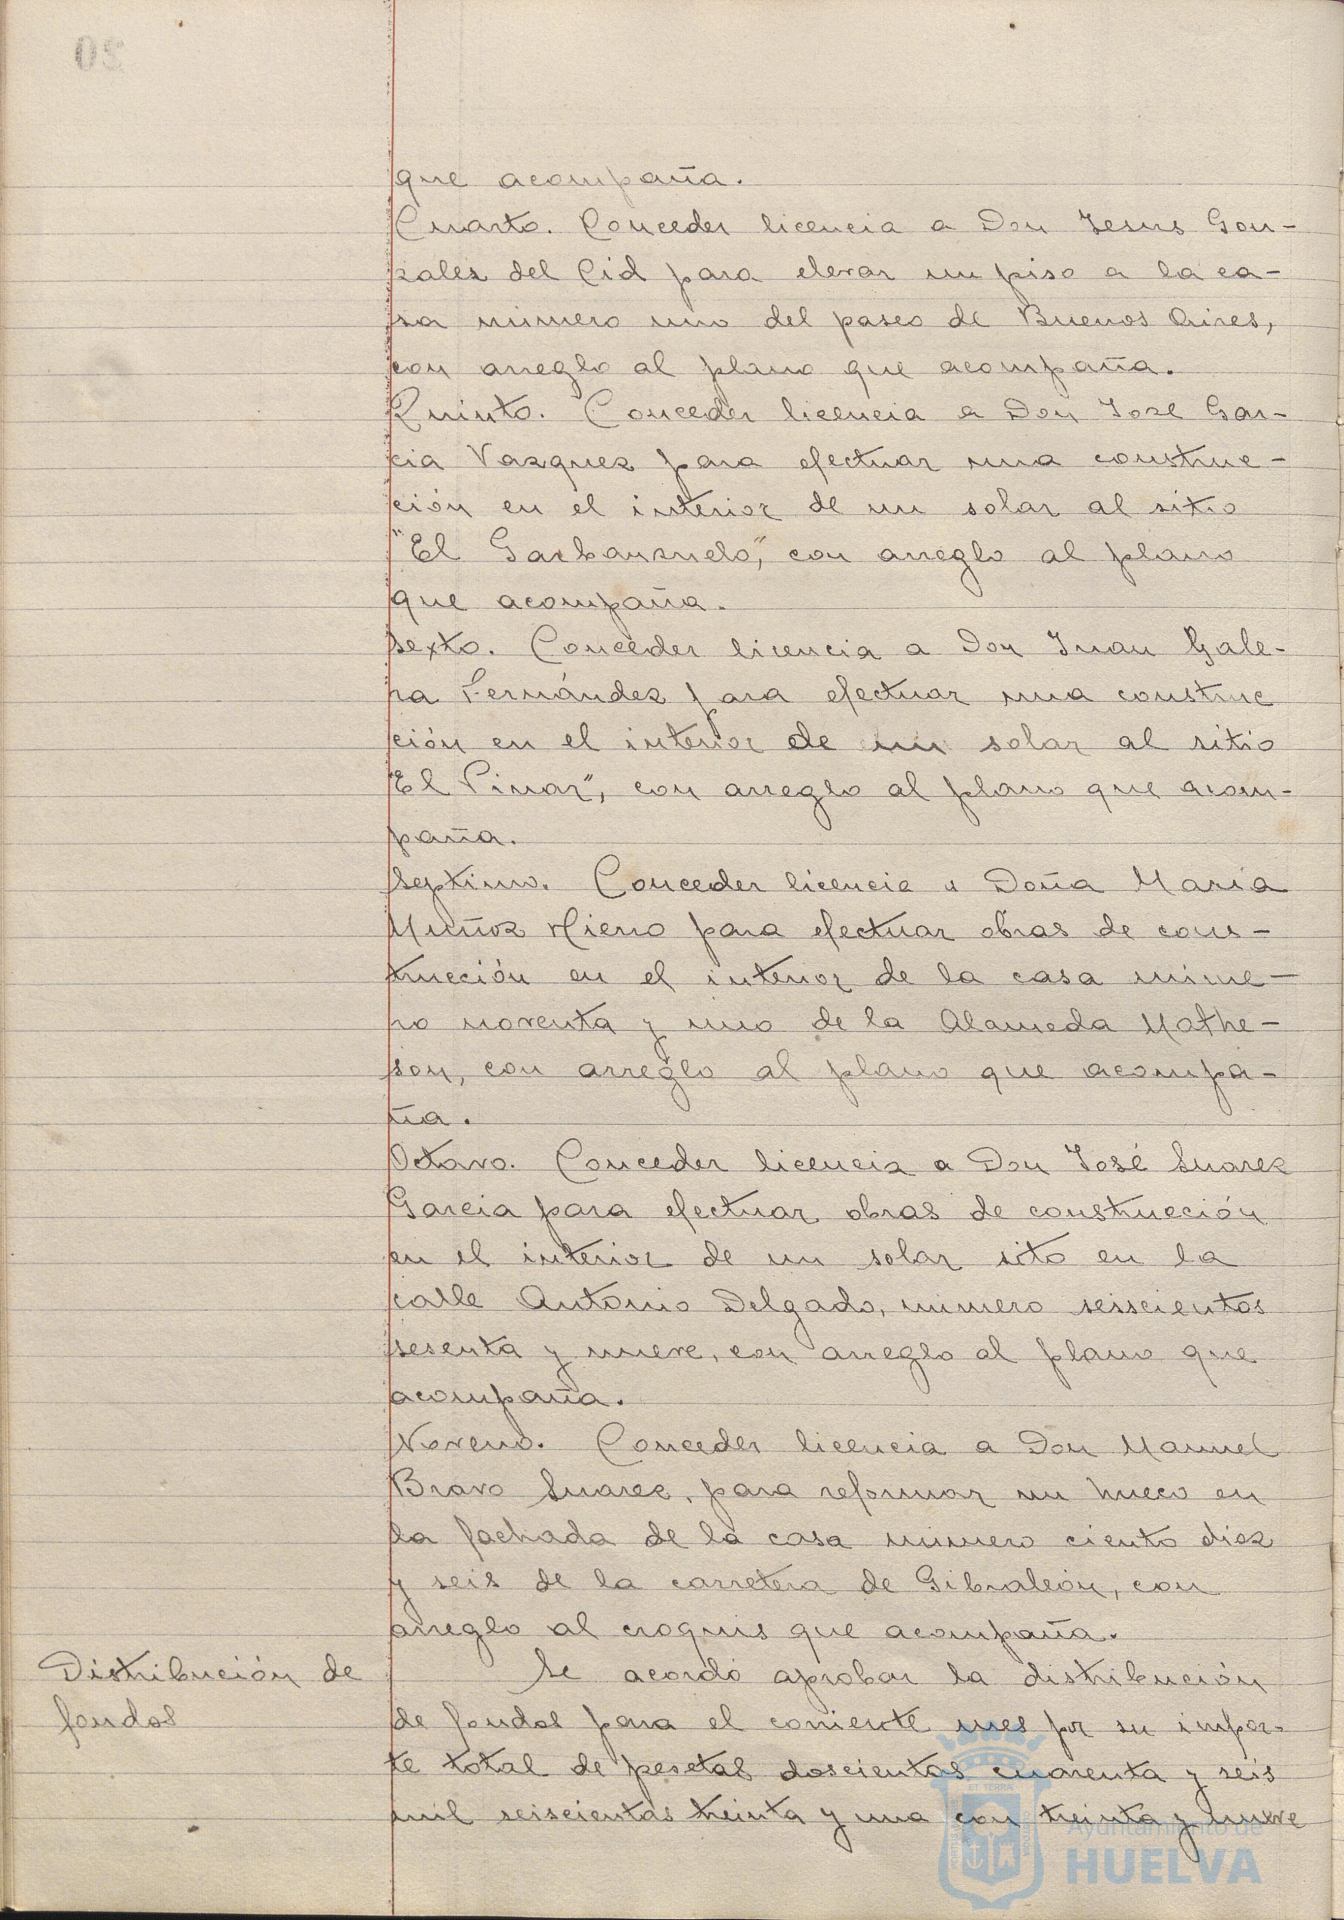 que acompaña.
Cuarto. Conceder licencia a Don Jesus Gon-
zalez del Cid para elevar un piso a la ca-
sa numero uno del paseo de Buenos Aires,
con arreglo al plano que acompaña.
Quinto. Conceder licencia a Don José Gar-
cia Vazquez para efectuar una construc-
ción en el interior de un solar al sitio
"El Garbanzuelo", con arreglo al plano
que acompaña.
Sexto. Conceder licencia a Don Juan Gale-
ra Fernández para efectuar una construc
ción en el interior de un solar al sitio
"El Pinar", con arreglo al plano que acom-
paña.
Septimo. Conceder licencia a Doña María
Muñoz Hierro para efectuar obras de cons-
trucción en el interior de la casa núme-
ro noventa y uno de la Alameda Mathe-
son, con arreglo al plano que acompa-
ña.
Octavo. Conceder licencia a Don José Suarez
Garcia para efectuar obras de construcción
en el interior de un solar sito en la
calle Antonio Delgado, numero seiscientos
sesenta y nueve, con arreglo al plano que
acompaña.
Noveno. Conceder licencia a Don Manuel
Bravo Suarez, para reformar un hueco en
la fachada de la casa numero ciento diez
y seis de la carretera de Gibraleón, con
arreglo al croquis que acompaña.
Distribución de
fondos
Se acordó aprobar la distribución
de fondos para el corriente mes por su impor-
te total de pesetas doscientas cuarenta y seis
mil seiscientas treinta y una con treinta y nueve
Ayuntamiento de
HUELVA